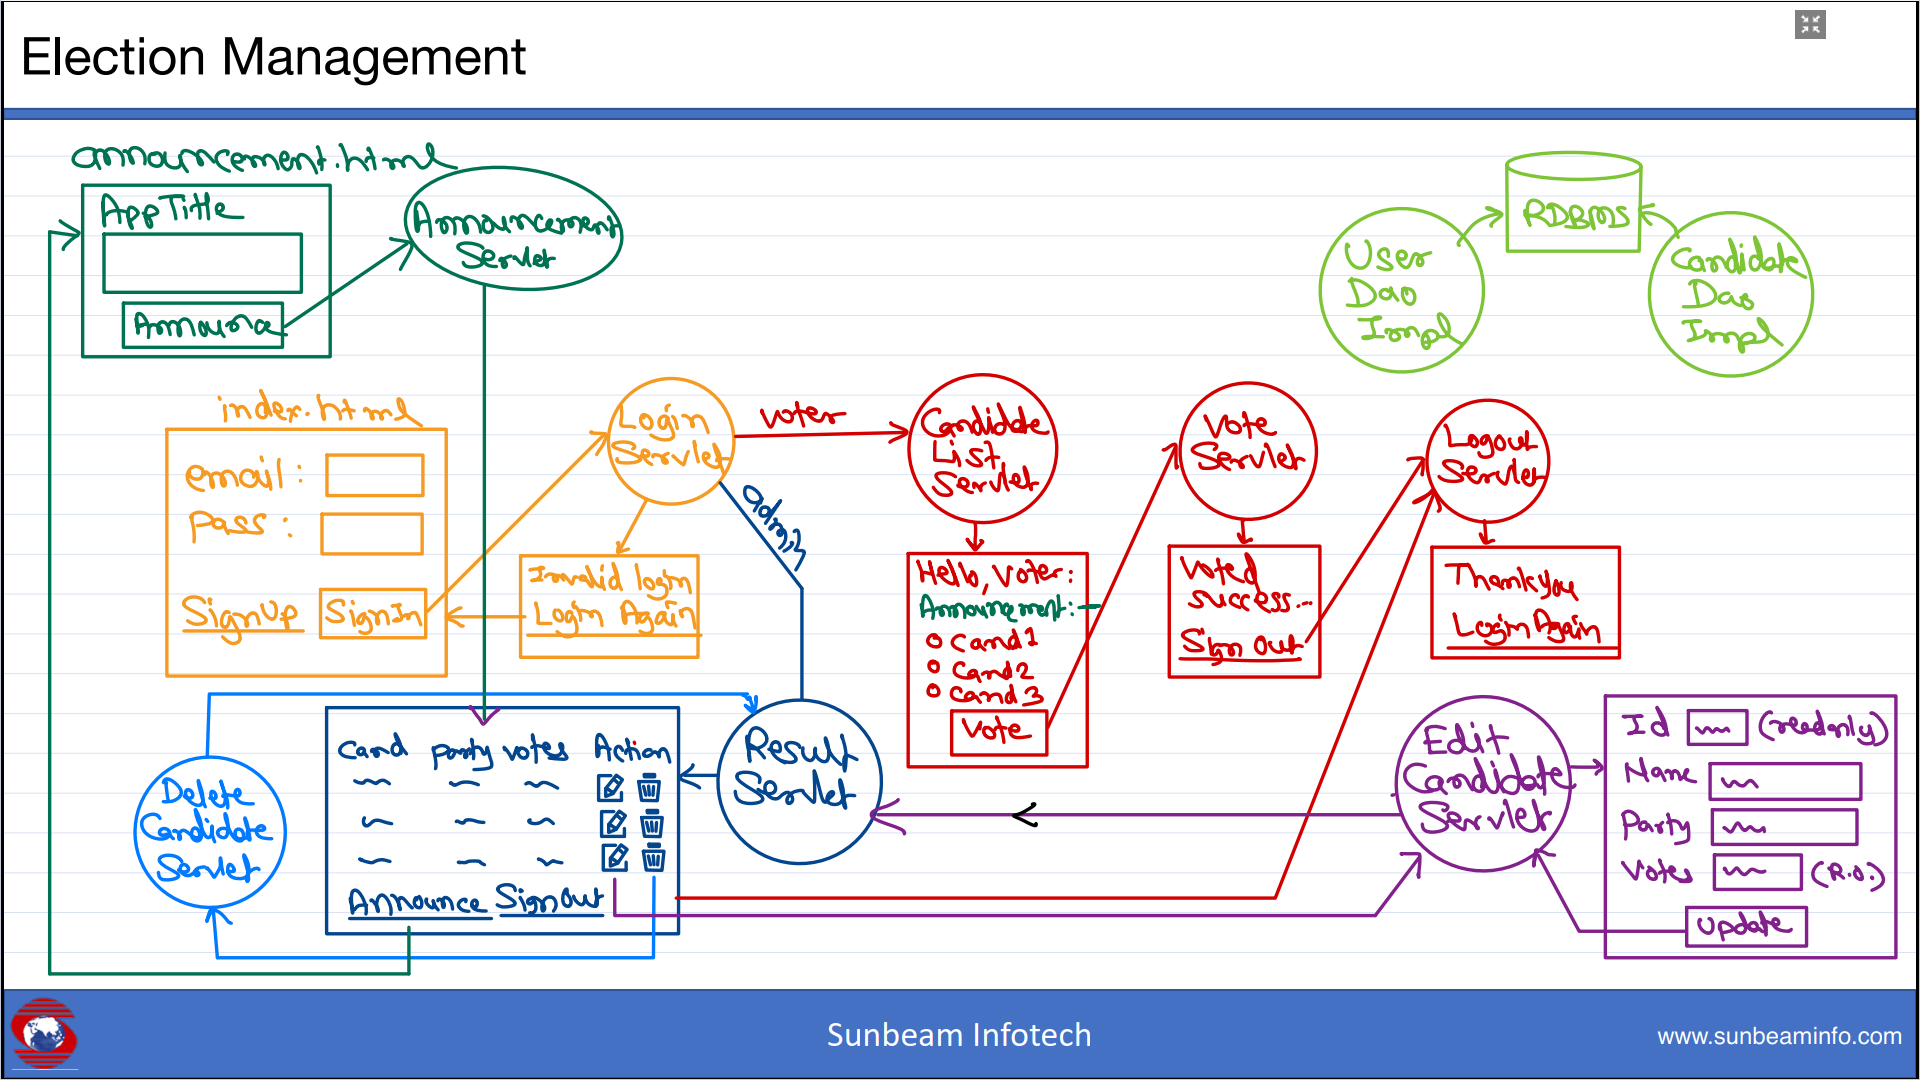 Election Management
announcement.html
App Title
Announce
Announcement
Servlet
RDBMS
User
Dao
Impl
Candidate
Dao
Impl
index.html
email :
Pass :
SignUp
SignIn
Login
Servlet
Invalid login
Login Again
voter
admin
Candidate
List
Servlet
Hello, Voter:
Announcement:-
Cand1
Cand2
Cand3
Vote
Vote
Servlet
Voted
success...
Sign Out
Logout
Servlet
Thankyou
Login Again
Delete
Candidate
Servlet
Cand party votes Action
Announce SignOut
Result
Servlet
Edit
Candidate
Servlet
Id (readonly)
Name
Party
Votes (R.O.)
Update
Sunbeam Infotech
www.sunbeaminfo.com